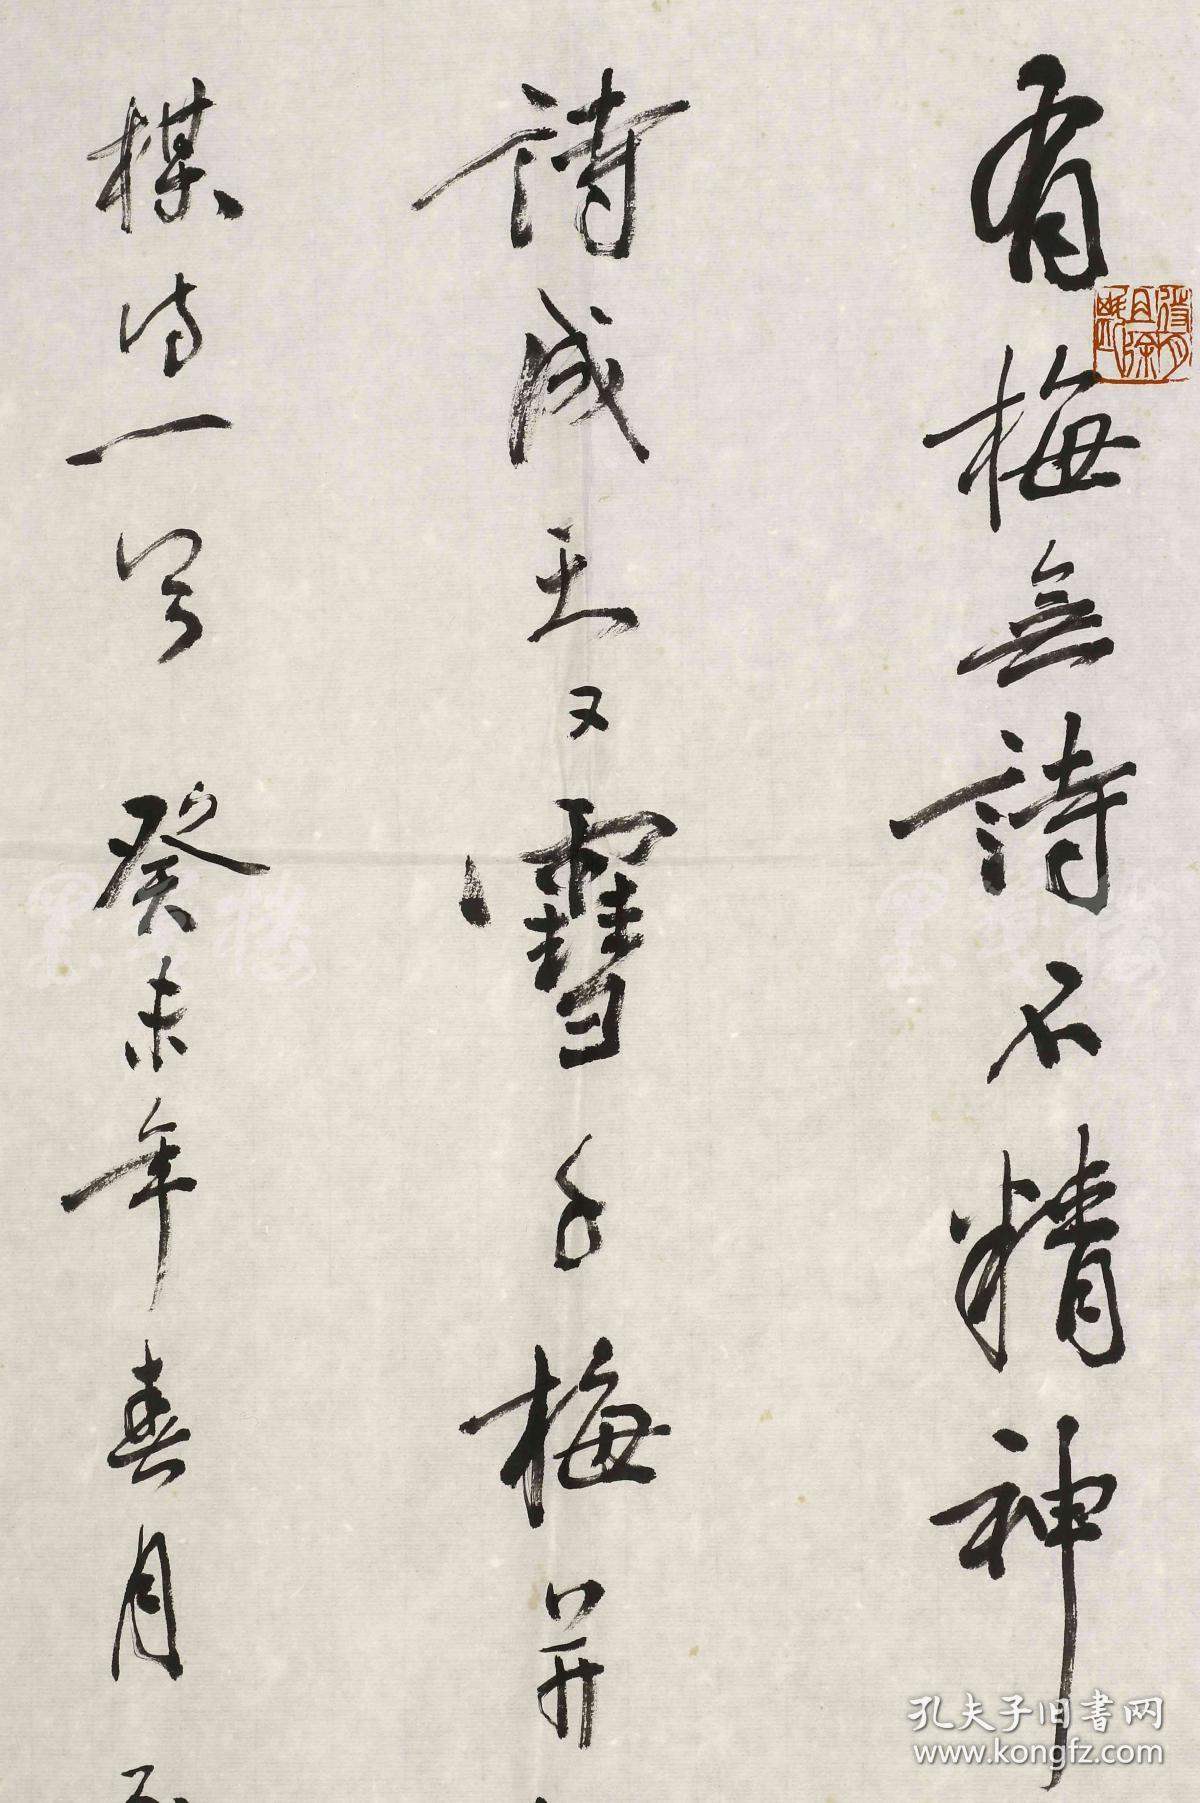 有梅無詩不精神
詩成天又雪与梅并
楳诗一首 癸未年春月
孔夫子旧书网
www.kongfz.com